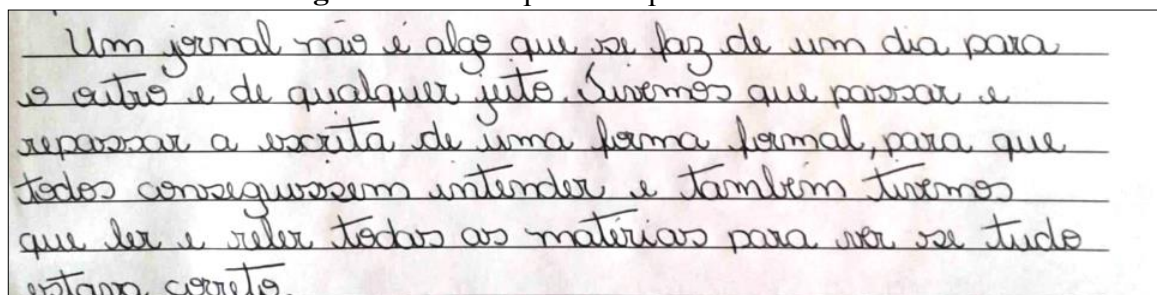 Um jornal não é algo que se faz de um dia para
o outro e de qualquer jeito. Tivemos que passar e
repassar a escrita de uma forma formal, para que
todos conseguissem intender e também tivemos
que ler e reler todas as matérias para ver se tudo
estava correto.